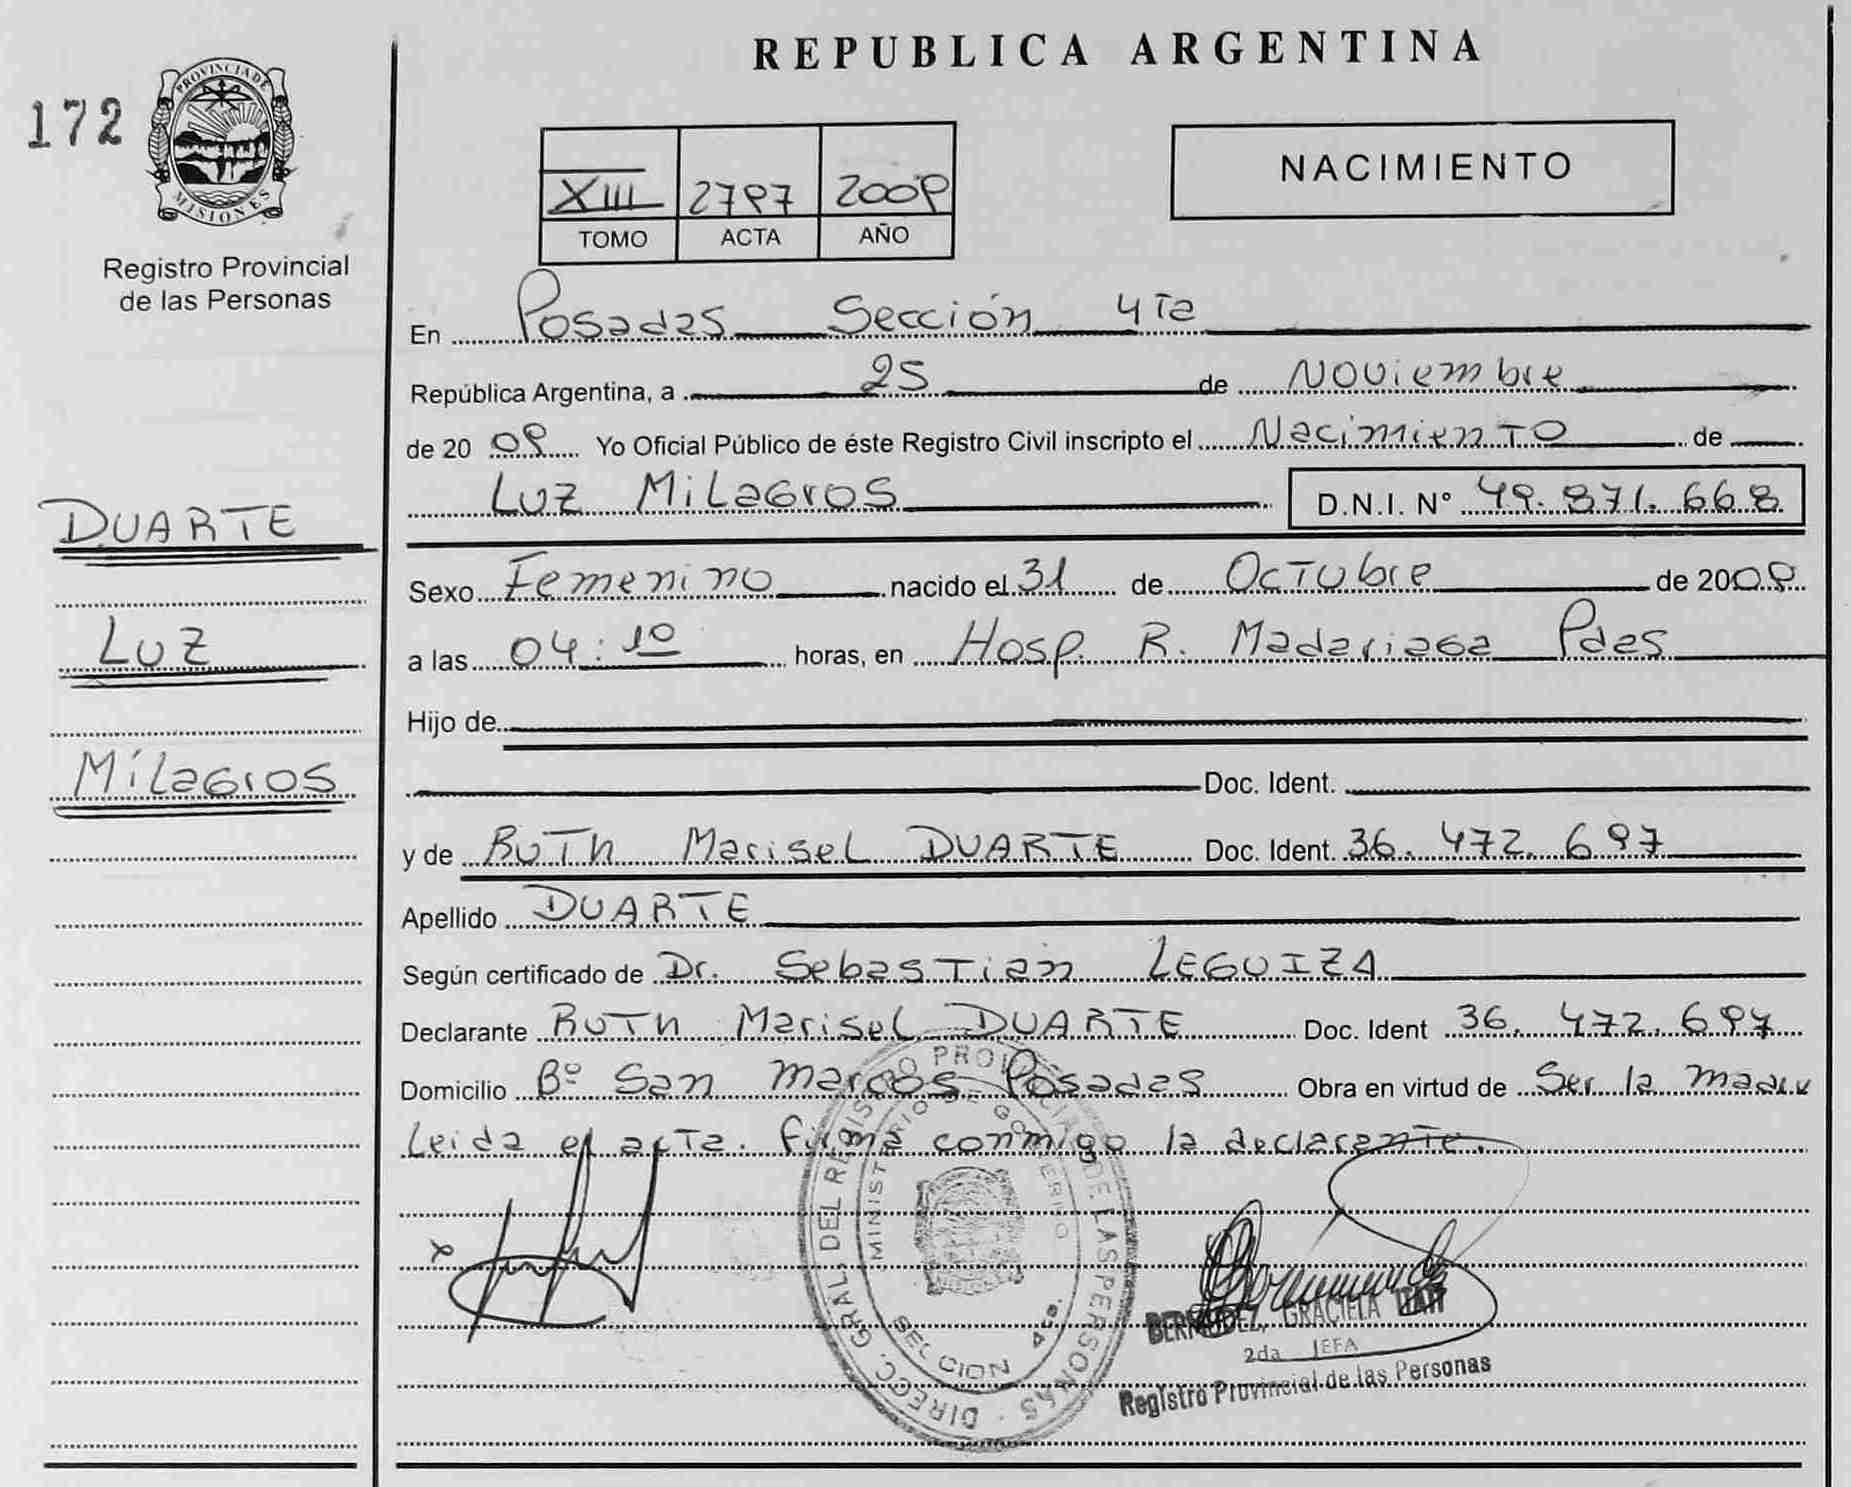 REPUBLICA ARGENTINA
172
PROVINCIA DE
MISIONES
Registro Provincial
de las Personas
XIII 2797 2009
TOMO ACTA AÑO
NACIMIENTO
En Posadas Sección 4ta
República Argentina, a 25 de Noviembre
de 20 09 Yo Oficial Público de éste Registro Civil inscripto el Nacimiento de
Luz Milagros D.N.I. Nº 49.871.668
DUARTE
Luz
Milagros
Sexo Femenino nacido el 31 de Octubre de 2009
a las 04:10 horas, en Hosp. R. Madariaga Pdas
Hijo de
Doc. Ident.
y de Ruth Marisel DUARTE Doc. Ident. 36.472.697
Apellido DUARTE
Según certificado de Dr. Sebastián LEGUIZA
Declarante Ruth Marisel DUARTE Doc. Ident 36.472.697
Domicilio Bº San Marcos Posadas Obra en virtud de Ser la madre
Leida el acta. firma conmigo la declarante.
x
DIRECC. GRAL. DEL REGISTRO PROVINCIAL DE LAS PERSONAS
MINISTERIO DE GOBIERNO
SECCION 4ta.
BERMUDEZ, GRACIELA ITATI
2da JEFA
Registro Provincial de las Personas